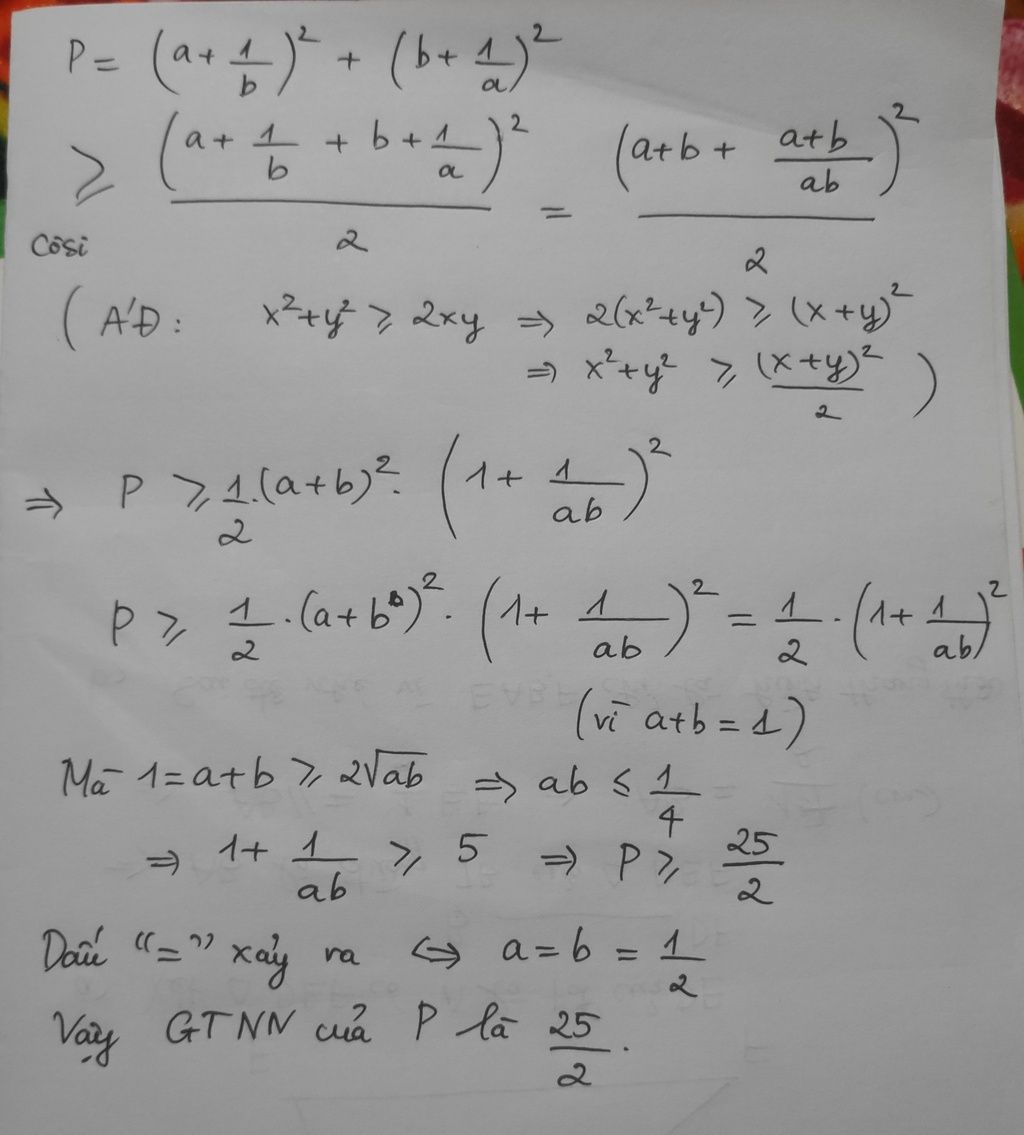 P = (a + 1/b)² + (b + 1/a)²
≥ (a + 1/b + b + 1/a)²/2 = (a+b + (a+b)/ab)²/2
Côsi
(AD: x²+y² ≥ 2xy ⇒ 2(x²+y²) ≥ (x+y)²
⇒ x²+y² ≥ (x+y)²/2)
⇒ P ≥ 1/2.(a+b)². (1 + 1/ab)²
P ≥ 1/2 .(a+b)². (1+ 1/ab)² = 1/2 . (1 + 1/ab)²
(vì a+b = 1)
Mà 1=a+b ≥ 2√ab ⇒ ab ≤ 1/4
⇒ 1+ 1/ab ≥ 5 ⇒ P ≥ 25/2
Dấu “=” xảy ra ⇔ a = b = 1/2
Vậy GTNN của P là 25/2.